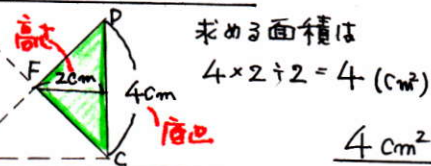 高さ
D
F
2cm
4cm
底辺
C
求める面積は
4×2÷2=4 (cm²)
4cm²